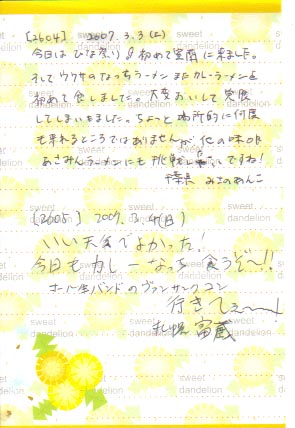 [2604] 2007.3.3(土)
今日はひな祭り 初めて室蘭に来ました。
そしてウワサのなっちラーメンまたカレーラーメンを
初めて食しました。大変おいしくて完食
してしまいました。ちょっと場所的に何度
も来れるところではありませんが 他の味や
あさみんラーメンにも挑戦したいですね!
みさのあんこ
[2605] 2007.3.4(日)
いい天気でよかった!
今日もカレーなっち 食うぞ~!!
ホール生バンドのヴァンサンクコン
行きてぇ~~
札幌 富蔵
sweet dandelion
sweet dandelion
sweet dandelion
sweet dandelion
sweet dandelion
sweet dandelion